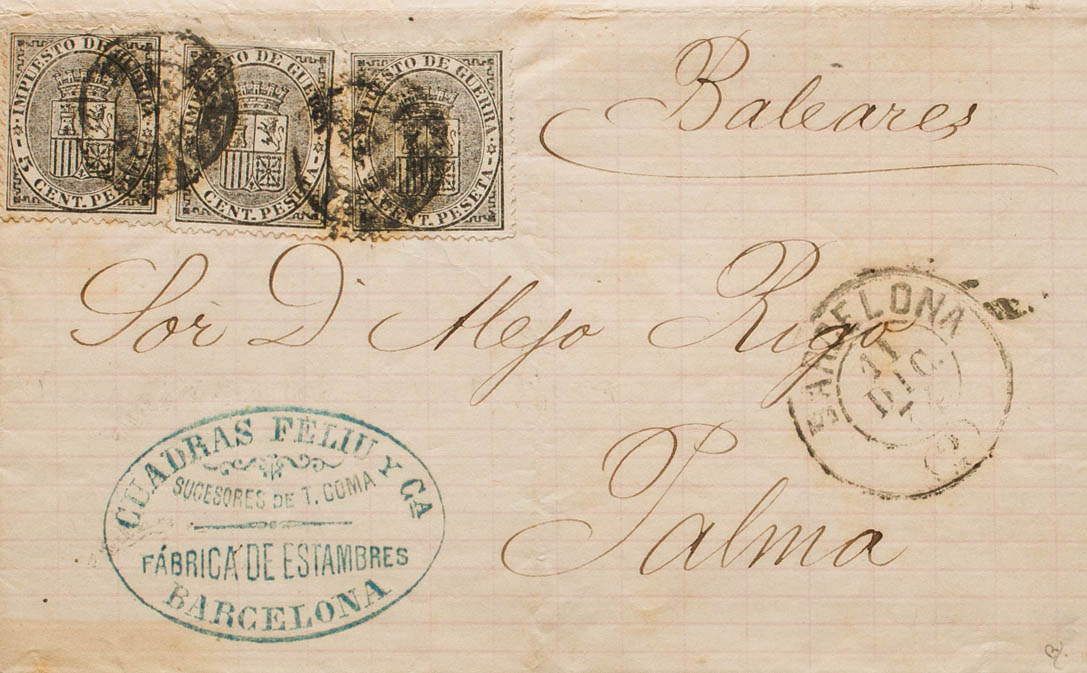 IMPUESTO DE GUERRA
5 CENT. PESETA
IMPUESTO DE GUERRA
CENT. PESETA
IMPUESTO DE GUERRA
CENT. PESETA
Baleares
Sor D Alejo Rigo
Palma
BARCELONA
11
DIC.
(2)
CUADRAS FELIU Y CA
SUCESORES DE T. COMA
FÁBRICA DE ESTAMBRES
BARCELONA